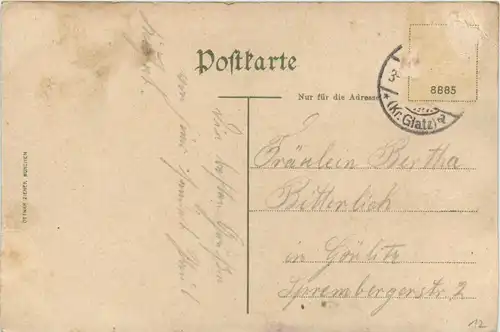 Postkarte
Nur für die Adresse
8885
(Kr. Glatz)
Fräulein Bertha
Bitterlich
in Görlitz
Sprembergerstr 2
Die besten Grüße
von
OTTMAR ZIEHER, MÜNCHEN
12